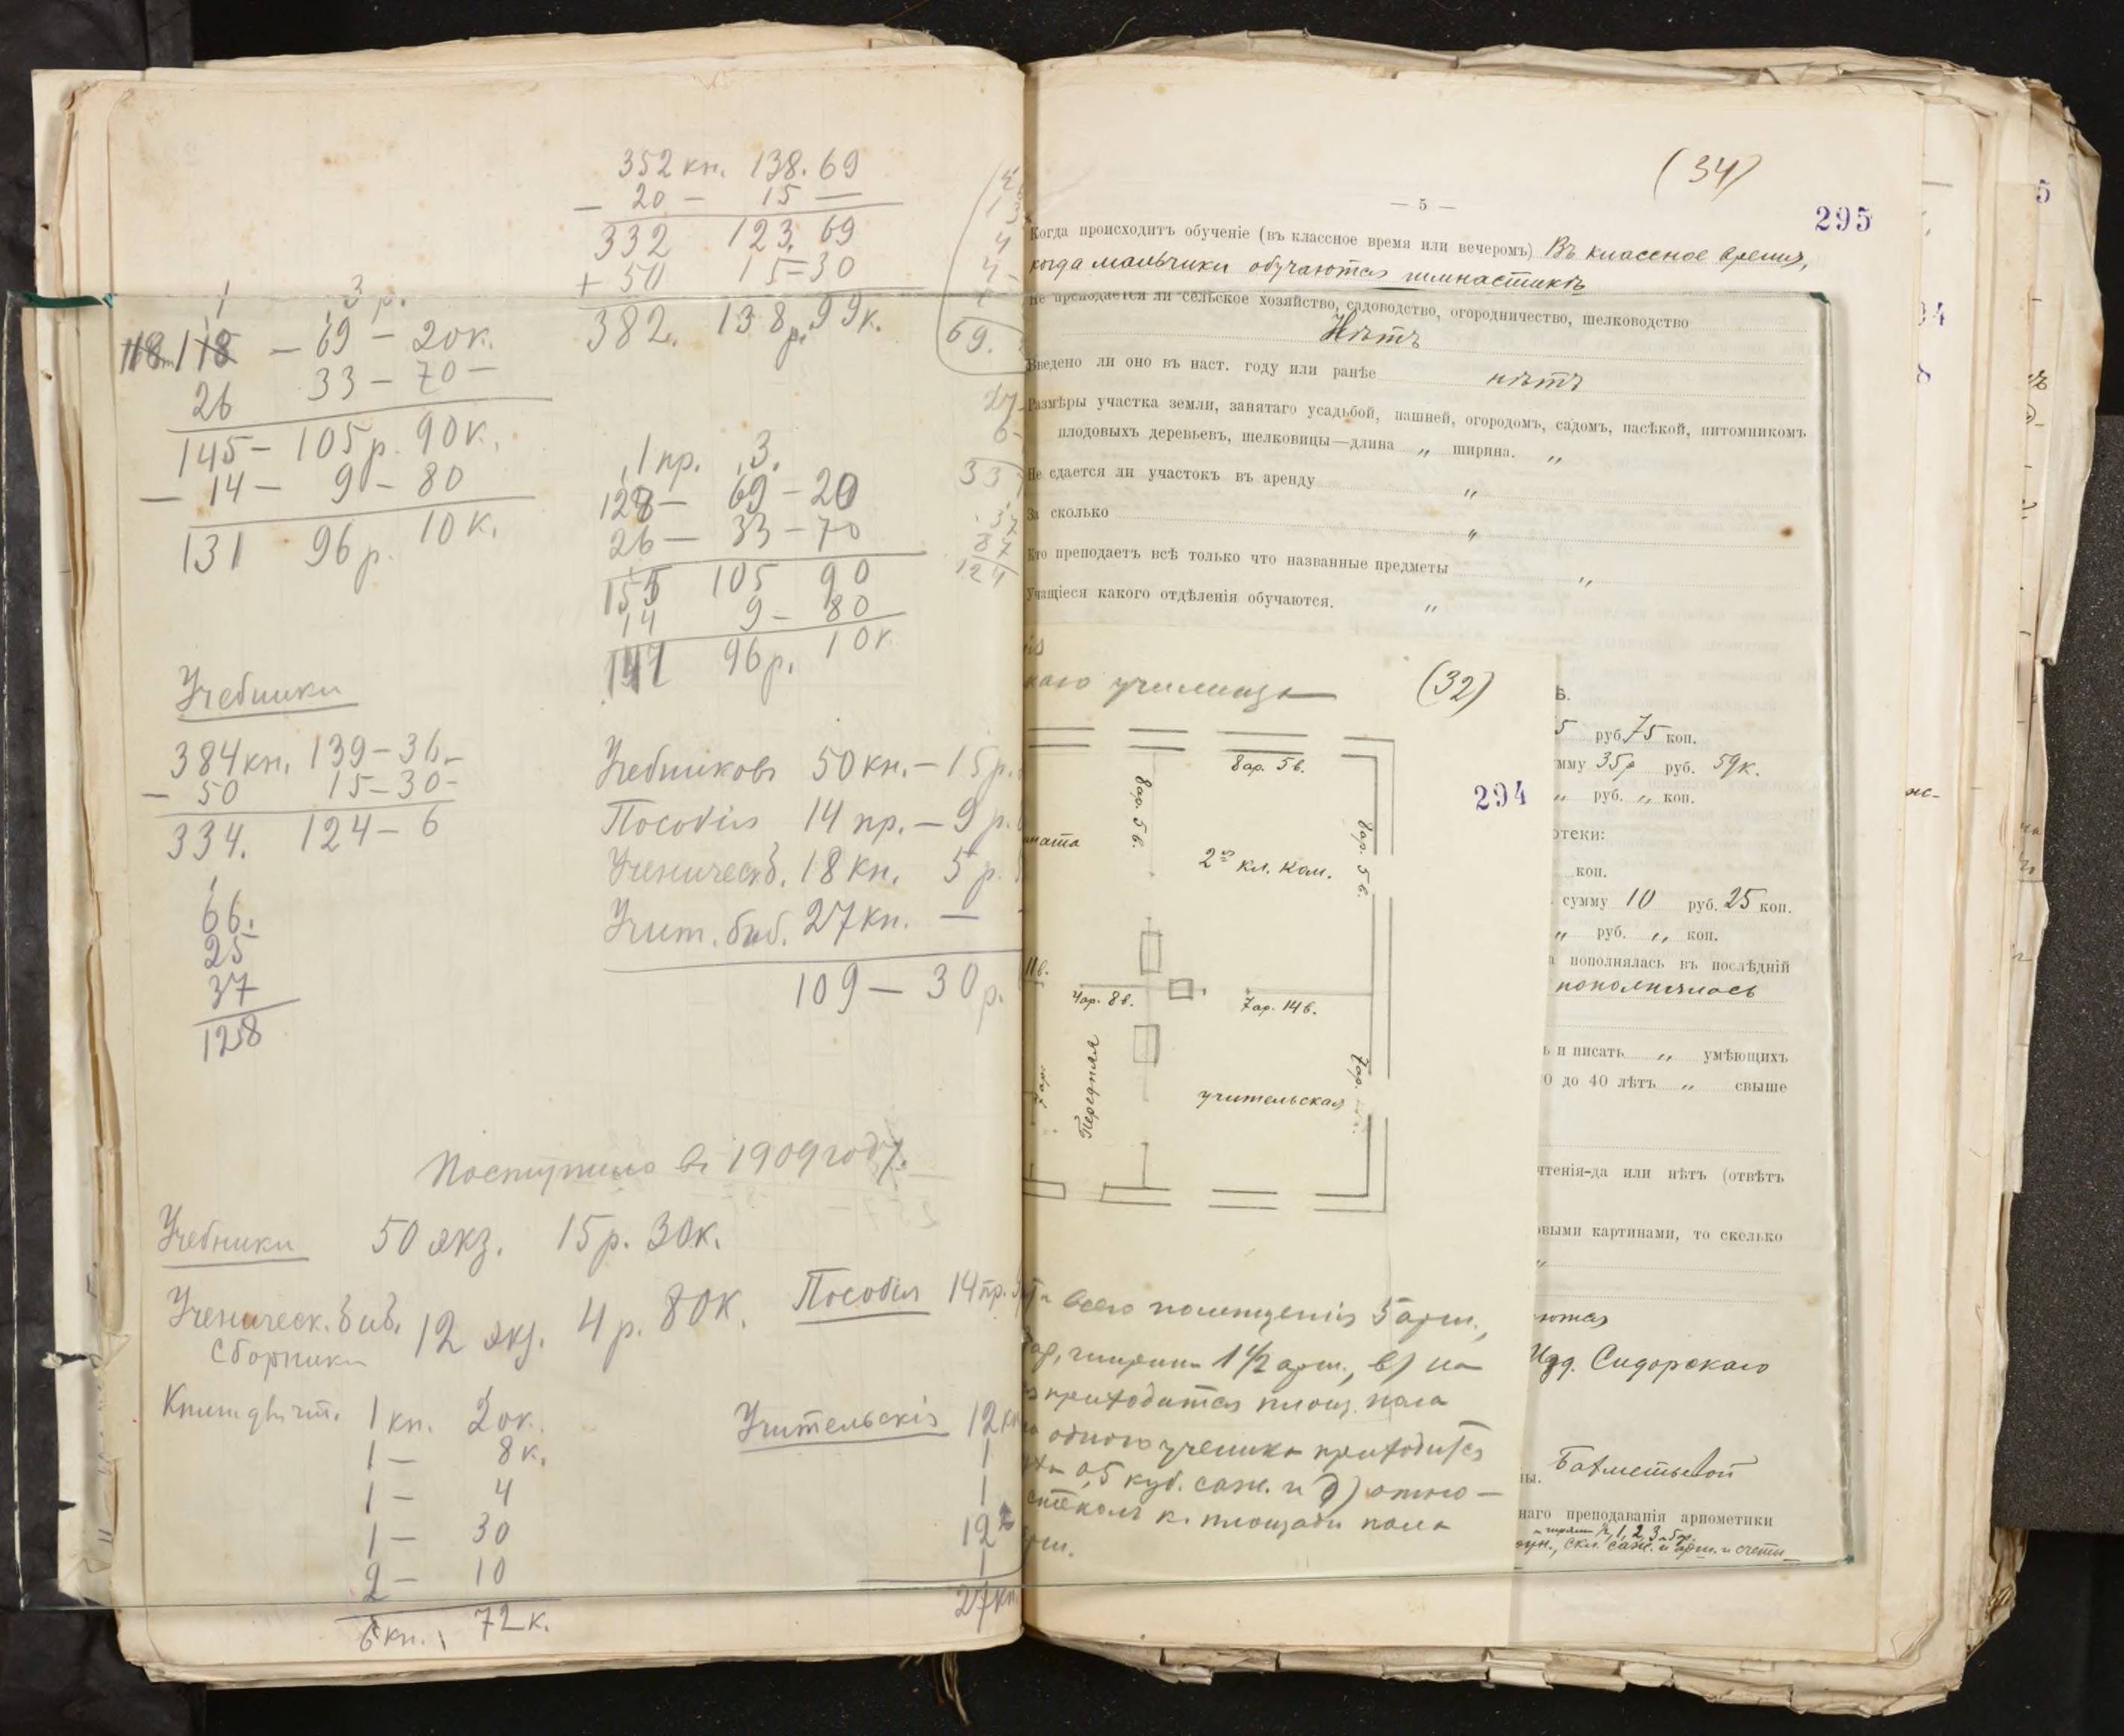 352 кн. 138.69
— 20 — 15 —
332 123.69
+ 50 15—30
382. 138 р. 99 к.
1 3 р.
118 — 69 — 20 к.
26 33 — 70 —
145 — 105 р. 90 к.
— 14 — 9 — 80
131 96 р. 10 к.
1 пр. 3.
128 — 69 — 20
26 — 33 — 70
155 105 90
14 9 — 80
141 96 р. 10 к
69.
27
6
33
124
Учебники
384 кн. 139—36
— 50 15—30
334. 124—6
66.
25
37
128
Учебниковъ 50 кн. — 15 р.
Пособія 14 пр. — 9 р.
Ученическ. 18 кн. 5 р.
Учит. биб. 27 кн. —
109 — 30 р.
Поступило въ 1909 году.
Учебники 50 экз. 15 р. 30 к.
Ученическ. биб. 12 экз. 4 р. 80 к. Пособія 14 пр.
Сборники
1 кн. 20 к.
1 — 8 к.
1 — 4
1 — 30
2 — 10
6 кн. 72 к.
Учительскія 12 кн
1
1
12
1
27 кн
(34)
— 5 —
295
Когда происходитъ обученіе (въ классное время или вечеромъ) Въ классное время,
когда мальчики обучаются гимнастикѣ
Не преподается ли сельское хозяйство, садоводство, огородничество, шелководство
Нѣтъ
Введено ли оно въ наст. году или ранѣе нѣтъ
Размѣры участка земли, занятаго усадьбой, пашней, огородомъ, садомъ, пасѣкой, питомникомъ
плодовыхъ деревьевъ, шелковицы—длина „ ширина. „
Не сдается ли участокъ въ аренду „
За сколько „
Кто преподаетъ всѣ только что названные предметы „
Учащіеся какого отдѣленія обучаются. „
каго училища (32)
294
8 ар. 5 в.
8 ар. 5 в.
8 ар. 5 в.
ната
2ая кл. ком.
11 в.
4 ар. 8 в.
7 ар. 14 в.
7 ар.
Передняя
учительская
7 ар
всего помещенія 5 арш.,
ар, ширина 1 1/2 арш., в) на
приходится площ. пола
одного ученика приходится
0,5 куб. саж. и д) отно-
стеколъ к площади пола
рш.
5 руб. 75 коп.
мму 35 р руб. 59 к.
„ руб. „ коп.
отеки:
коп.
сумму 10 руб. 25 коп.
„ руб. „ коп.
а пополнялась въ послѣдній
пополнялась
ь и писать „ умѣющихъ
0 до 40 лѣтъ „ свыше
чтенія-да или нѣтъ (отвѣтъ
овыми картинами, то сколько
„
ются
Изд. Сидорскаго
ны. Бахметьевой
наго преподаванія ариѳметики
скл. саж. и арш. и счеты